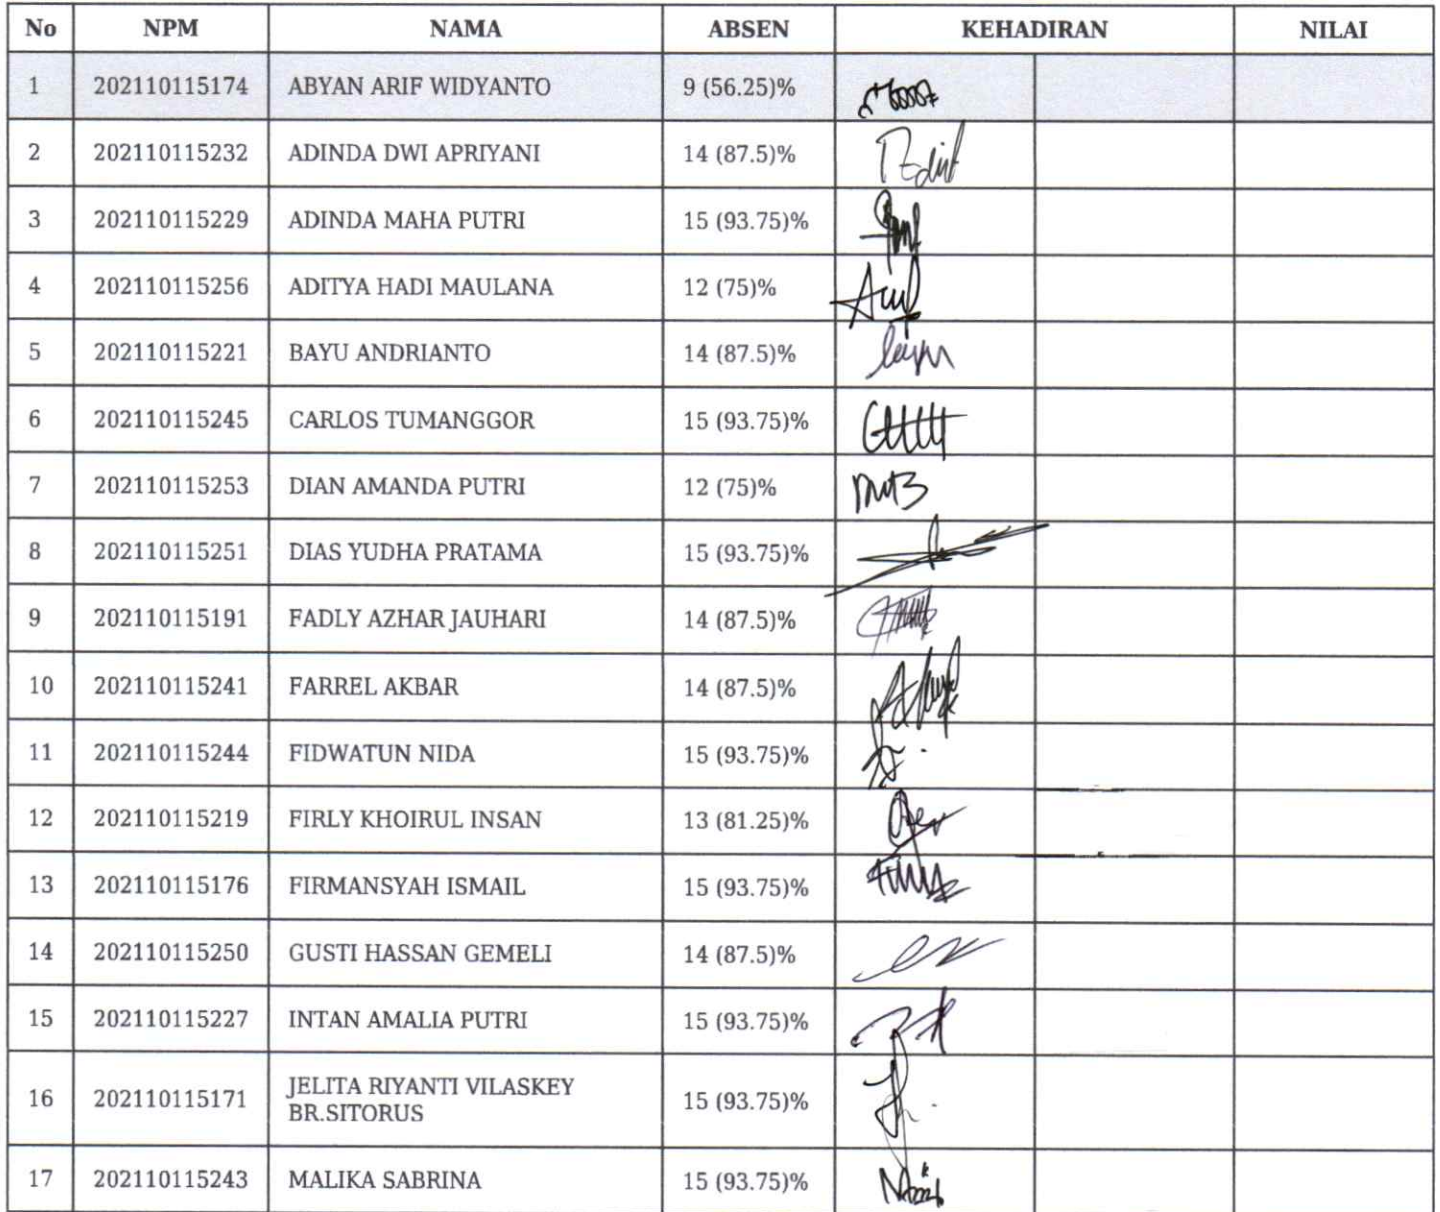 No NPM NAMA ABSEN KEHADIRAN NILAI
1 202110115174 ABYAN ARIF WIDYANTO 9 (56.25)%
2 202110115232 ADINDA DWI APRIYANI 14 (87.5)%
3 202110115229 ADINDA MAHA PUTRI 15 (93.75)%
4 202110115256 ADITYA HADI MAULANA 12 (75)%
5 202110115221 BAYU ANDRIANTO 14 (87.5)%
6 202110115245 CARLOS TUMANGGOR 15 (93.75)%
7 202110115253 DIAN AMANDA PUTRI 12 (75)%
8 202110115251 DIAS YUDHA PRATAMA 15 (93.75)%
9 202110115191 FADLY AZHAR JAUHARI 14 (87.5)%
10 202110115241 FARREL AKBAR 14 (87.5)%
11 202110115244 FIDWATUN NIDA 15 (93.75)%
12 202110115219 FIRLY KHOIRUL INSAN 13 (81.25)%
13 202110115176 FIRMANSYAH ISMAIL 15 (93.75)%
14 202110115250 GUSTI HASSAN GEMELI 14 (87.5)%
15 202110115227 INTAN AMALIA PUTRI 15 (93.75)%
16 202110115171 JELITA RIYANTI VILASKEY
BR.SITORUS 15 (93.75)%
17 202110115243 MALIKA SABRINA 15 (93.75)%